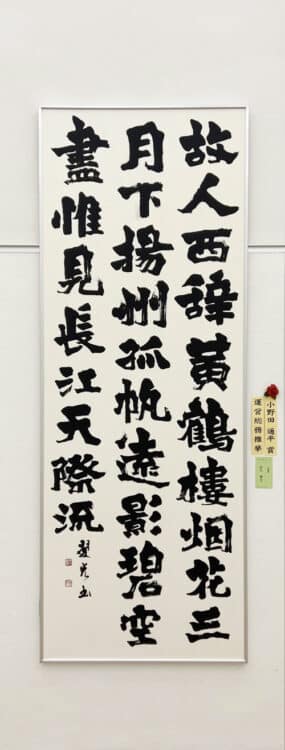 故人西辞黄鶴樓烟花三
月下揚州孤帆遠影碧空
盡惟見長江天際流
小野田 通平 賞
運営総務推挙